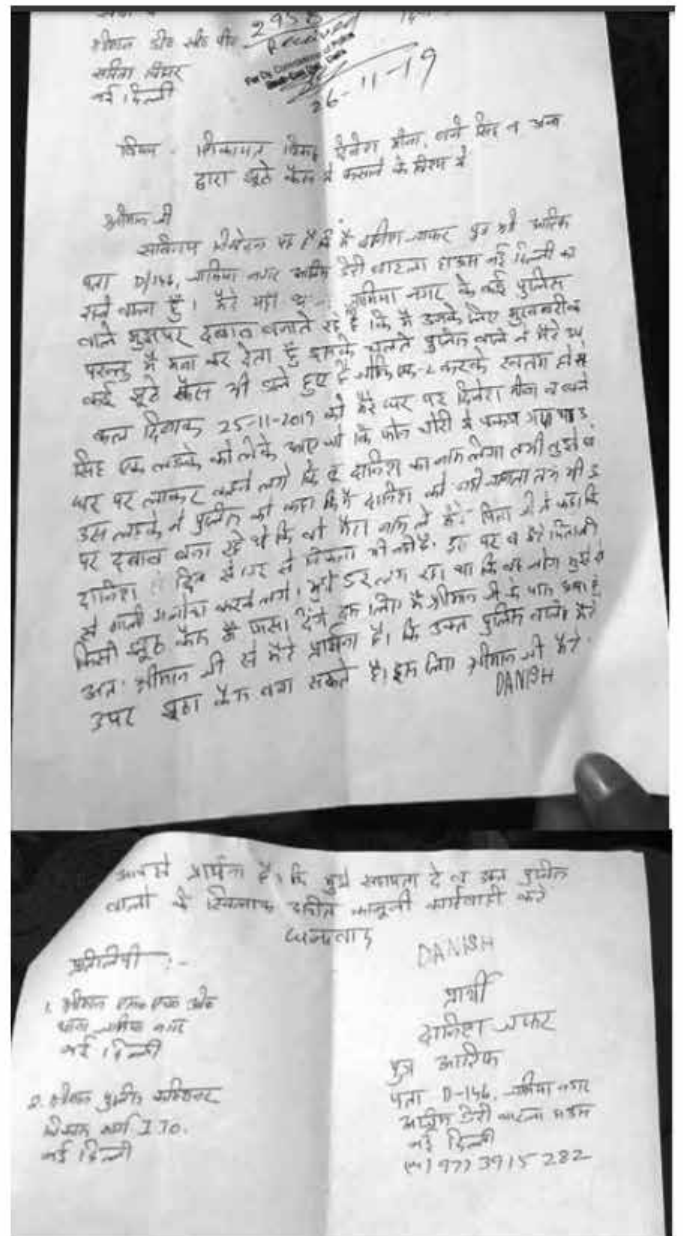 श्रीमान डी० सी० पी०
2958
Received
सरिता विहार
नई दिल्ली
26-11-19
विषय - शिकायत विरुद्ध दिनेश मीना, बने सिंह व अन्य
द्वारा झूठे केस में फसाने के विषय में
श्रीमान जी
सविनय निवेदन यह है कि मैं दानिश जाफर पुत्र श्री आरिफ
पता D/146, जामिया नगर आरिफ डेरी बाटला हाऊस नई दिल्ली का
रहने वाला हूँ। मेरे यहां जामिया नगर के कई पुलिस
वाले मुझपर दबाव बनाते रहे है कि मै उनके लिए मुखबरी करू
परन्तु मै मना कर देता हूँ इसके चलते पुलिस वालो ने मेरे उप
कई झूठे केस भी बने हुए है जोकि एक-2 करके खत्म हो गये
कल दिनांक 25-11-2019 को मेरे घर पर दिनेश मीना व बने
सिंह एक लडके को लेके आए जो कि फोन चोरी मे पकडा गया था उ
घर पर लाकर कहने लगे कि तू दानिश का नाम लेगा तभी तुझे छ
उस लडके ने पुलिस को कहा कि मै दानिश को नही जानता तब भी उ
पर दबाव बना रहे थे कि वो मेरा नाम ले मेरे पिता जी ने कहा कि
दानिश दिन से घर से निकला भी नही है. इस पर व मेरे पिताजी
से गाली गलोच करने लगे। मुझे डर लग रहा था कि वह लोग मुझे भी
किसी झूठे केस मे फसा देंगे इस लिए मै श्रीमान जी के पास आया हूँ
अतः श्रीमान जी से मेरी प्रार्थना है। कि उक्त पुलिस वाले मेरे
उपर झूठा केस बना सकते है। इस लिए श्रीमान जी मेरी
DANISH
आपसे प्रार्थना है। कि मुझे सहायता दे व उक्त पुलिस
वालो के खिलाफ उचित कानूनी कार्यवाही करे
धन्यवाद
DANISH
प्रतिलिपी :-
1. श्रीमान एस० एच० ओ०
थाना जामिया नगर
नई दिल्ली
2. श्रीमान पुलिस कमिश्नर
I.T.O.
नई दिल्ली
प्रार्थी
दानिश जाफर
पुत्र आरिफ
पता D-146, जामिया नगर
आरिफ डेरी बाटला हाऊस
नई दिल्ली
9773915282